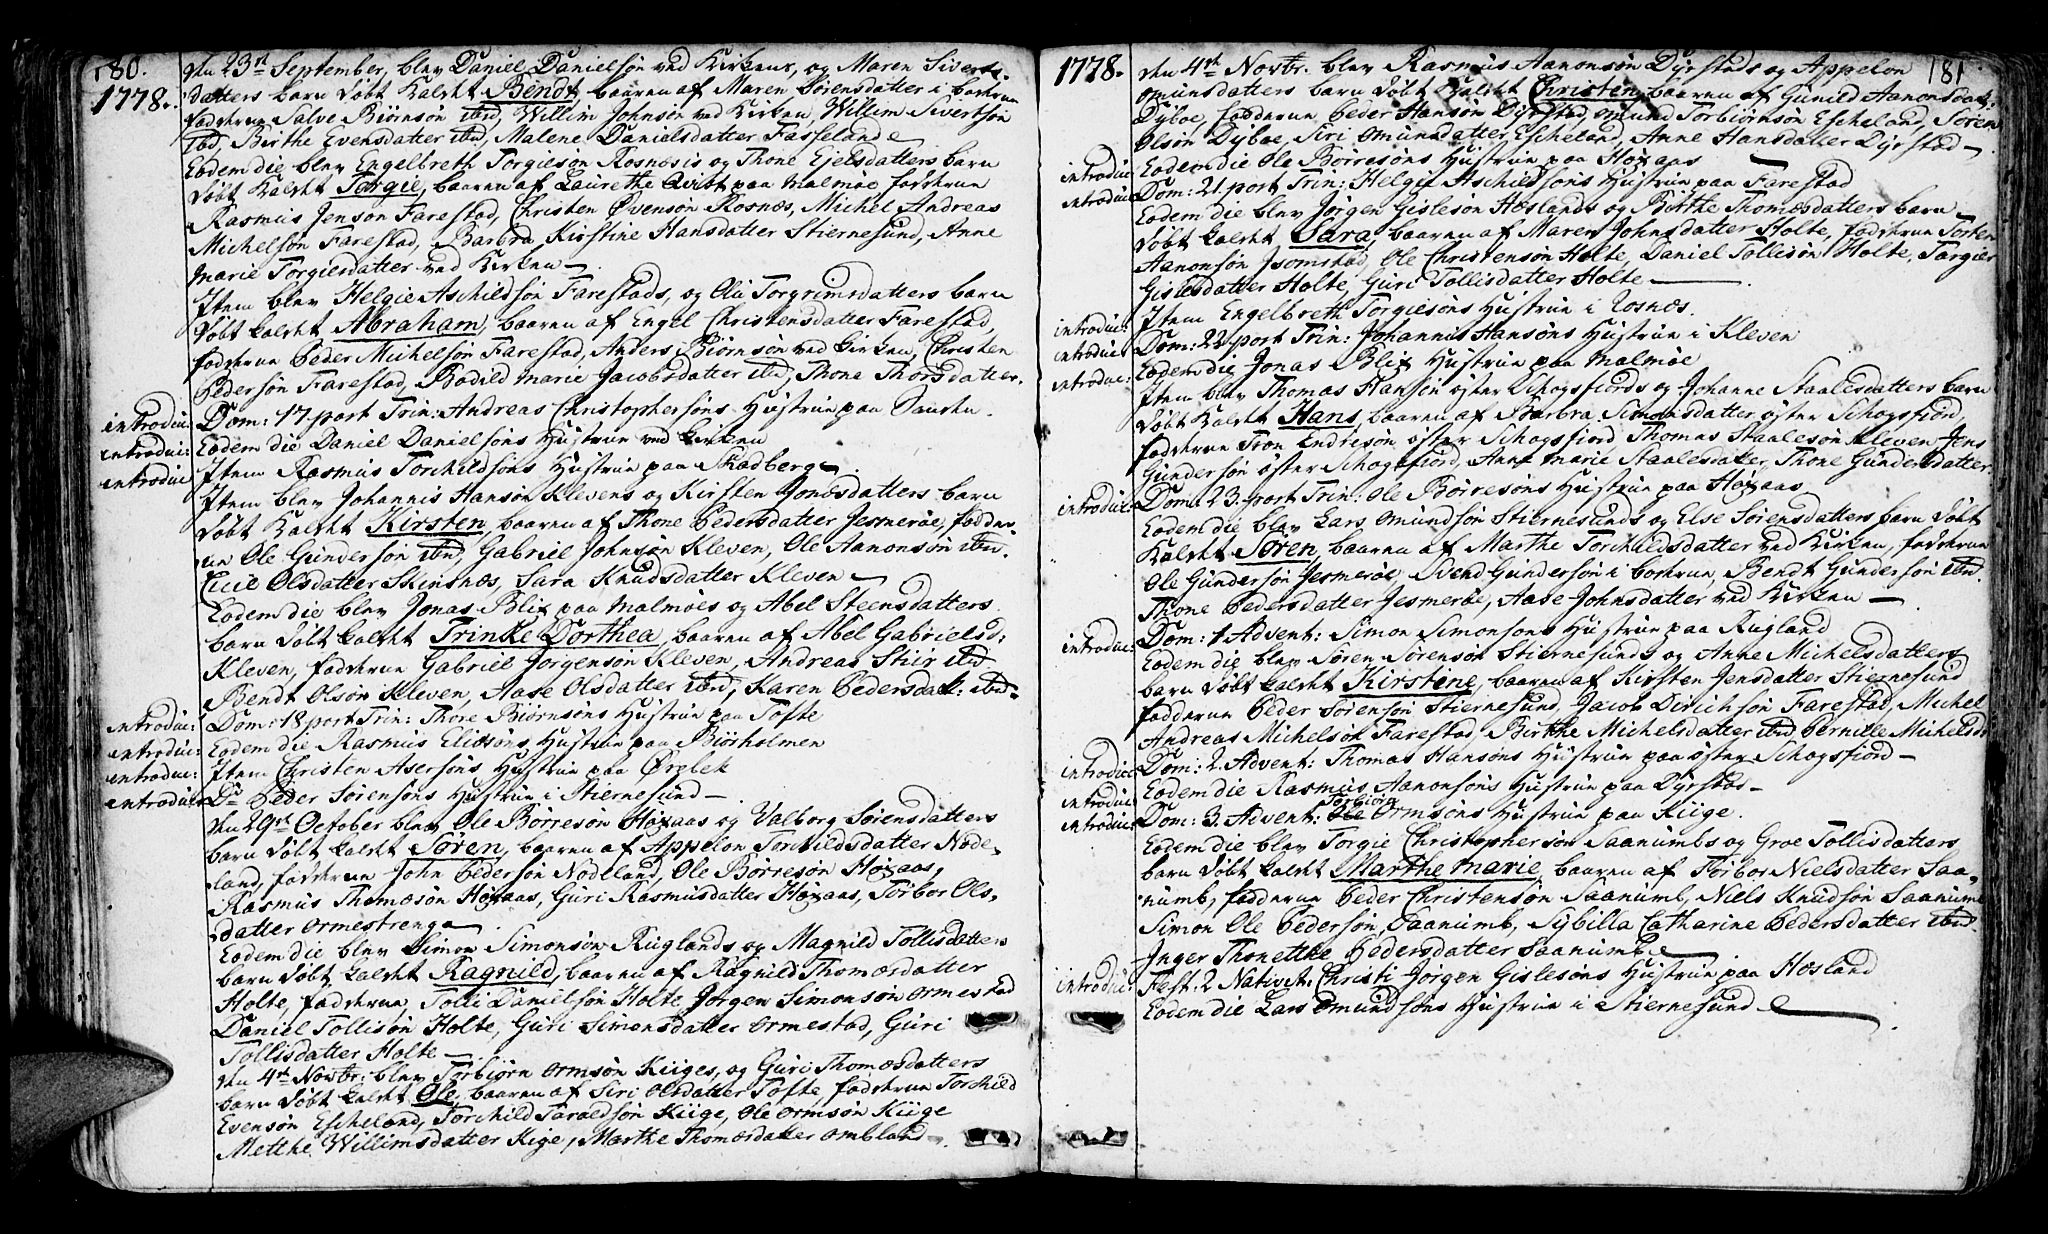 180.
1778.
den 23de September, blev Daniel Danielsøn ved Kirkens, og Maren Siverts-
datters barn døbt kaldet Bendt, baaren af Maren Sørensdatter i
fadderne Salve Biørnsøn ibid, Willim Johnsøn ved Kirken, Willum Sivertsøn
ibid, Birthe Evensdatter ibid, Malene Danielsdatter Fasseland
Eodem die blev Engelbreth Torgiesøn Rosnæsis og Thone Ejelsdatters barn
døbt kaldet Torgie, baaren af Laurethe Qvist paa Malmøe fadderne
Rasmus Jensøn Farestad, Christen Øvensøn Rosnæs, Michel Andreas
Michelsøn Farestad, Barbra Kirstine Hansdatter Stiernesund, Anne
Marie Torgiesdatter ved Kirken
Item blev Helgie Aschildsøn Farestads, og Olu Torgrimsdatters barn
døbt kaldet Abraham, baaren af Engel Christensdatter Farestad,
fadderne Peder Michelsøn Farestad, Anders Biørnsøn ved Kirken, Christen
Pedersøn Farestad, Bodild Marie Jacobsdatter ibid, Thone Thorsdatter.
introduc: Dom: 17 post Trin: Andreas Christophersøns Hustrue paa
introduc: Eodem die Daniel Danielsøns Hustrue ved Kirken
introduc Item Rasmus Torchildsøns Hustrue paa Skadberg
Item blev Johannis Hansøn Klevens og Kirsten Jonasdatters barn
døbt kaldet Kirsten, baaren af Thone Pedersdatter Jesmerøe, fadder-
ne Ole Gundersøn ibid, Gabriel Johnsøn Kleven, Ole Aanonsøn ibid.
Cicie Olsdatter Skinsnæs, Sara Knudsdatter Kleven
Eodem die blev Jonas Blix paa Malmøes og Abel Steensdatters
barn døbt kaldet Trinke Dorthea, baaren af Abel Gabrielsd:
Kleven, fadderne Gabriel Jørgensøn Kleven, Andreas Stiir ibid
Bendt Olsøn Kleven, Aase Olsdatter ibid, Karen Pedersdatt: ibid.
introduc: Dom: 18 post Trin: Thore Biørnsøns Hustrue paa Tofte
introduc: Eodem die Rasmus Eliesøns, Hustrue paa Biørholmen
introduc: Item Christen Asersøns Hustrue paa Ørelek
introduc: Do Peder Sørensøns Hustrue i Stiernesund
den 29de October blev Ole Børresøn Høxaas og Valborg Sørensdatters
barn døbt kaldet Søren, baaren af Appelon Torchildsdatter Node-
land, fadderne John Pedersøn Nodeland, Ole Børresøn Høxaas,
Rasmus Thomæsøn Høxaas, Guri Rasmusdatter Høxaas, Torbor Ols-
datter Ormestrenge
Eodem die blev Simon Simonsøn Ruglands og Magnild Tollisdatters
barn døbt kaldet Ragnild, baaren af Ragnild Thomæsdatter
Holte, fadderne, Tolli Danielsøn Holte, Jørgen Simonsøn Ormestad
Daniel Tollisøn Holte, Guri Simonsdatter Ormestad, Guri
Tollisdatter Holte
den 4de Novbr: blev Torbiørn Ormsøn Kiiges, og Guri Thomæsdatters
barn døbt kaldet Ole, baaren af Siri Olsdatter Tofte, fadderne Torchild
Evensøn Escheland, Torchild Taraldsøn Kiige, Ole Ormsøn Kiige
Metthe Willimsdatter Kige, Marthe Thomæsdatter Ombland
1778.
181
den 4de Novbr. blev Rasmus Aanonsøn Dyrstads og Appelon
Omunsdatters barn døbt kaldet Christen, baaren af Gunild Aanonsdatt:
Dyboe, fadderne Peder Hansøn Dyrstad, Omund Torbiørnsøn Escheland, Søren
Olsøn Dyboe, Siri Omunsdatter Escheland, Anne Hansdatter Dyrstad
introduc Eodem die Ole Børresøns Hustrue paa Høxaas
introduc Dom: 21. post Trin: Helgie Aschildsøns Hustrue paa Farestad
Eodem die blev Jørgen Gislesøn Høslands og Birthe Thomæsdatters barn
døbt kaldet Sara, baaren af Maren Johnsdatter Holte, fadderne Torten
Aanonsøn Jsomstad, Ole Christensøn Holte, Daniel Tollisøn Holte, Torgier
Gislesdatter Holte, Guri Tollisdatter Holte
introduc: Item Engelbreth Torgiesøns Hustrue i Rosnæs.
introduc: Dom: 22 post Trin: Johannis Hansøns Hustrue i Kleven
introduc: Eodem die Jonas Blix Hustrue paa Malmøe
Item blev Thomas Hansøn øster Schogsfiords og Johanne Staalesdatters barn
døbt kaldet Hans, baaren af Barbra Simonsdatter øster Schogsfiord,
fadderne Tron Endresøn øster Schogsfiord, Thomas Staalesøn Kleven, Jens
Gundersøn øster Schogsfiord, Anne Marie Staalesdatter, Thone Gundersdatter.
introduc: Dom: 23. post Trin: Ole Børresøns Hustrue paa Høxaas
Eodem die blev Lars Omundsøn Stiernesunds og Else Sørensdatters barn døbt
kaldet Søren, baaren af Marthe Torchildsdatter ved Kirken, fadderne
Ole Gundersøn Jesmerøe, Svend Gundersøn i, Bendt Gundersøn ibid.
Thone Pedersdatter Jesmerøe, Aase Johnsdatter ved Kirken
introduc: Dom: 1 Advent: Simon Simonsons Hustrue paa Rugland
Eodem die blev Søren Sørensøn Stiernesunds og Anne Michelsdatters
barn døbt kaldet Kirstine, baaren af Kirsten Jensdatter Stiernesund
fadderne Peder Sørensøn Stiernesund, Jacob Dirichsøn Farestad, Michel
Andreas Michelsøn Farestad, Birthe Michelsdatter ibid, Pernille Michelsd:
introduc Dom: 2. Advent: Thomas Hansøns Hustrue paa øster Schogsfiord
introduc Eodem die Rasmus Aanonsøns Hustrue paa Dyrstad
Torbiørn
introduc: Dom: 3. Advent: Ole Ormsøns Hustrue paa Kiige.
Eodem die blev Torgie Christophersøn Saanumbs og Groe Tollisdatters
barn døbt kaldet Marthe Marie, baaren af Torbor Nielsdatter Saa-
numb, fadderne Peder Christensøn Saanumb, Niels Knudsøn Saanumb
Simon Ole Pedersøn, Saanumb, Sybilla Catharine Pedersdatter ibid.
Inger Thonetthe Pedersdatter Saanumb
introduc: Fest: 2 Nativit: Christi Jørgen Gislesøns Hustrue paa Høsland
Eodem die Lars Omundsøns Hustrue i Stiernesund